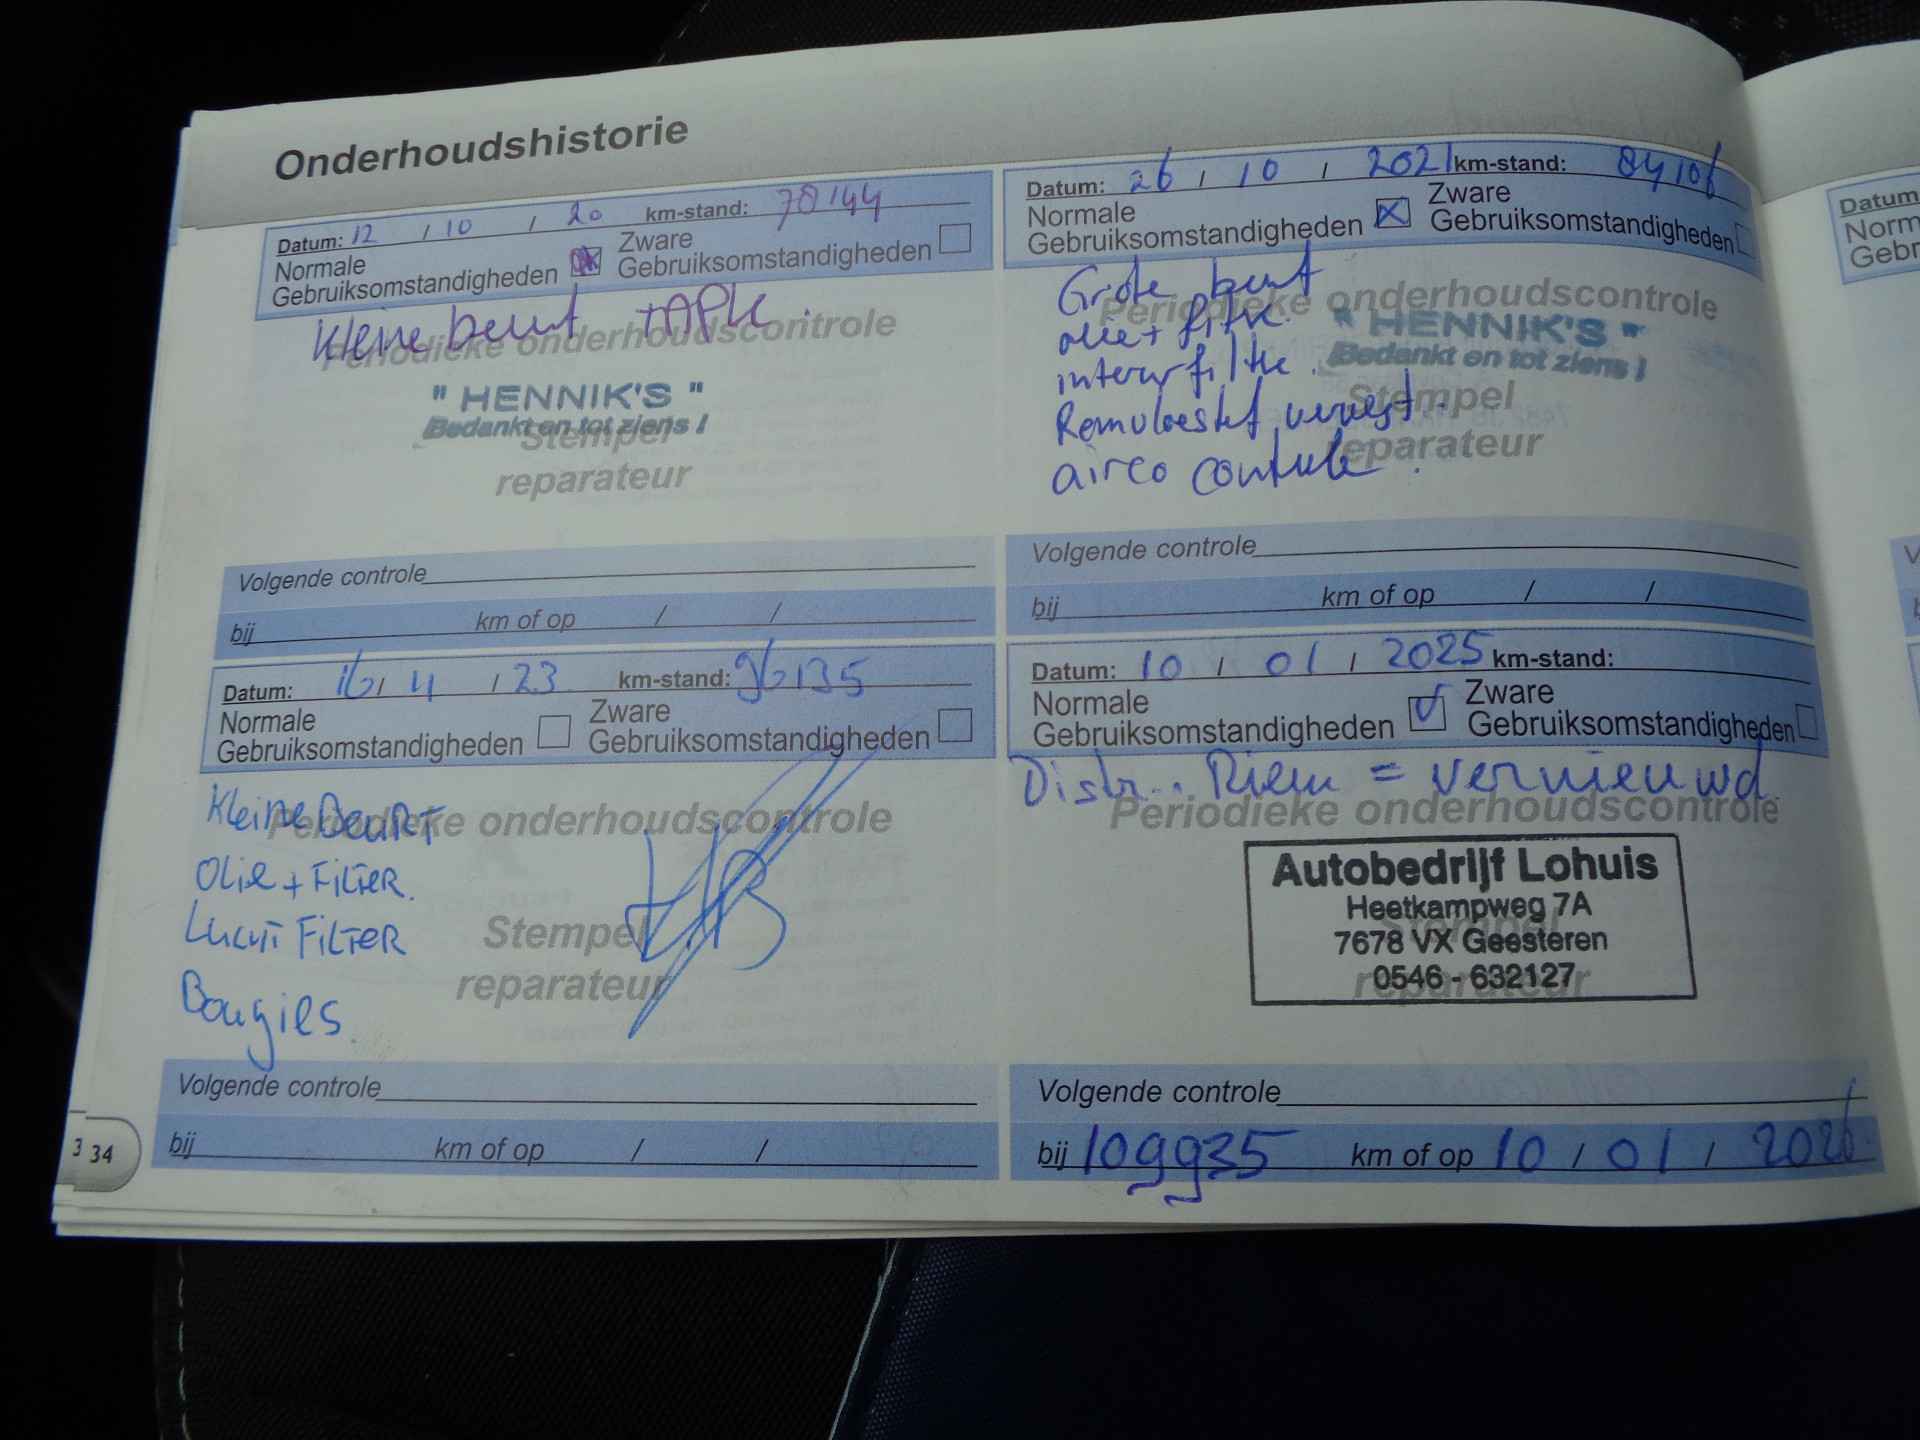 Onderhoudshistorie
Datum: 12 / 10 / 20 km-stand: 78144
Normale Gebruiksomstandigheden Zware Gebruiksomstandigheden
Kleine beurt + APK.
Periodieke onderhoudscontrole
" HENNIK'S "
Bedankt en tot ziens !
Stempel
reparateur
Volgende controle
bij km of op / /
Datum: 26 / 10 / 2021 km-stand: 84106
Normale Gebruiksomstandigheden Zware Gebruiksomstandigheden
Grote beurt
Periodieke onderhoudscontrole
olie + filter.
" HENNIK'S "
Bedankt en tot ziens !
interieurfilter.
Stempel
Remvloeistof ververst.
reparateur
airco controle.
Volgende controle
bij km of op / /
Datum: 16 / 4 / 23 km-stand: 96135
Normale Gebruiksomstandigheden Zware Gebruiksomstandigheden
Kleine Beurt
Periodieke onderhoudscontrole
Olie + Filter.
Lucht Filter
Stempel
reparateur
Bougies
Volgende controle
bij km of op / /
Datum: 10 / 01 / 2025 km-stand:
Normale Gebruiksomstandigheden Zware Gebruiksomstandigheden
Distr.. Riem = vernieuwd
Periodieke onderhoudscontrole
Autobedrijf Lohuis
Heetkampweg 7A
7678 VX Geesteren
0546 - 632127
Stempel
reparateur
Volgende controle
bij 109935 km of op 10 / 01 / 2026
3 34
Datum